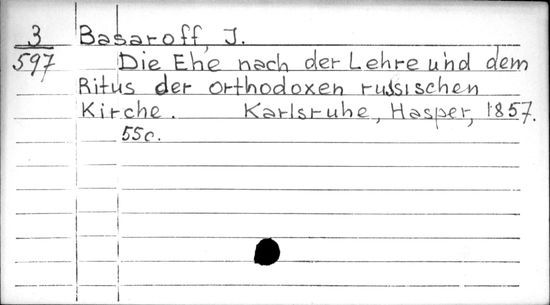 3 Basaroff, J.
597 Die Ehe nach der Lehre und dem
Ritus der orthodoxen russischen
Kirche. Karlsruhe, Hasper, 1857.
55c.